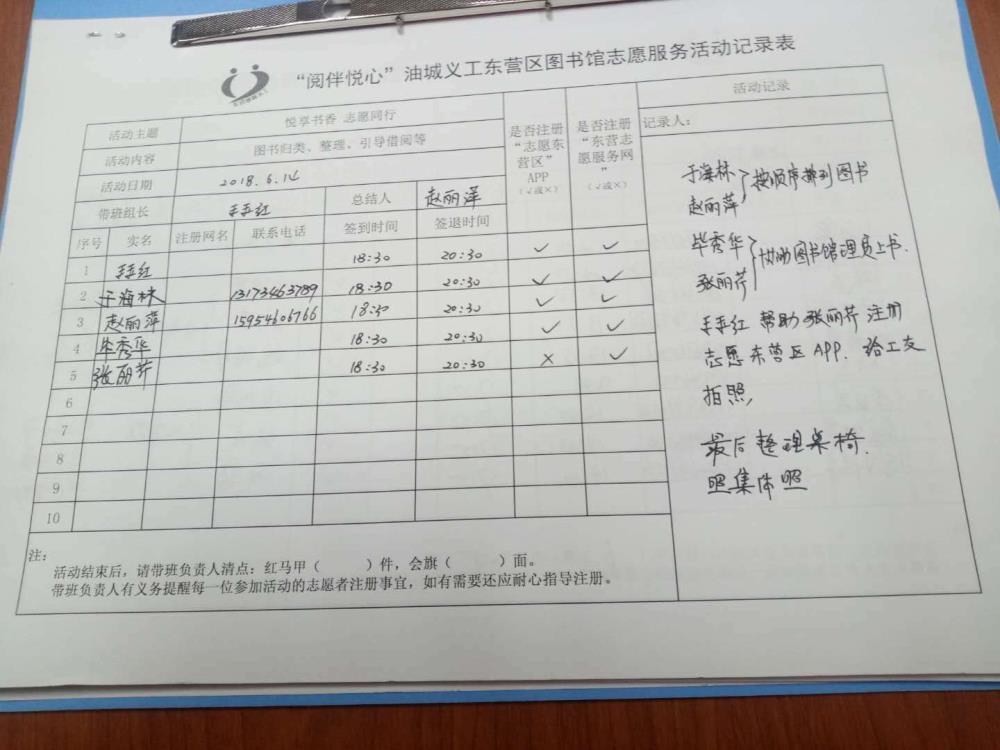 “阅伴悦心”油城义工东营区图书馆志愿服务活动记录表
活动主题 悦享书香 志愿同行
活动内容 图书归类、整理、引导借阅等
活动日期 2018.6.14
带班组长 王玉红 总结人 赵丽萍
序号 实名 注册网名 联系电话 签到时间 签退时间
是否注册
“志愿东
营区”
APP
(√或×)
是否注册
“东营志
愿服务网
”
(√或×)
1 王玉红 18:30 20:30 ✓ ✓
2 于海林 13173463789 18:30 20:30 ✓ ✓
3 赵丽萍 15954606766 18:30 20:30 ✓ ✓
4 毕秀华 18:30 20:30 ✓ ✓
5 张丽芹 18:30 20:30 × ✓
6
7
8
9
10
注:
活动结束后，请带班负责人清点：红马甲（ ）件，会旗（ ）面。
带班负责人有义务提醒每一位参加活动的志愿者注册事宜，如有需要还应耐心指导注册。
活动记录
记录人：
于海林
赵丽萍 } 按顺序排列图书
毕秀华
张丽芹 } 协助图书馆管理员上书.
王玉红 帮助张丽芹 注册
志愿东营区APP. 给工友
拍照,
最后整理桌椅.
照集体照